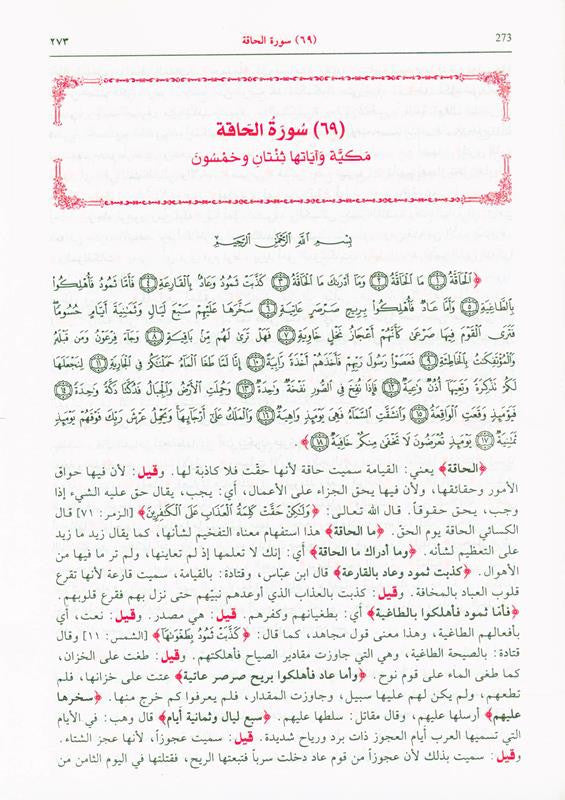 ٢٧٣ (٦٩) سورة الحاقة 273
(٦٩) سُورَةُ الحَاقة
مَكيَّة وَآيَاتهَا ثِنْتَانِ وخَمْسُونَ
بِسْمِ اللَّهِ الرَّحْمَٰنِ الرَّحِيمِ
﴿الْحَاقَّةُ ١ مَا الْحَاقَّةُ ٢ وَمَا أَدْرَاكَ مَا الْحَاقَّةُ ٣ كَذَّبَتْ ثَمُودُ وَعَادٌ بِالْقَارِعَةِ ٤ فَأَمَّا ثَمُودُ فَأُهْلِكُوا
بِالطَّاغِيَةِ ٥ وَأَمَّا عَادٌ فَأُهْلِكُوا بِرِيحٍ صَرْصَرٍ عَاتِيَةٍ ٦ سَخَّرَهَا عَلَيْهِمْ سَبْعَ لَيَالٍ وَثَمَانِيَةَ أَيَّامٍ حُسُومًا
فَتَرَى الْقَوْمَ فِيهَا صَرْعَىٰ كَأَنَّهُمْ أَعْجَازُ نَخْلٍ خَاوِيَةٍ ٧ فَهَلْ تَرَىٰ لَهُم مِّنۢ بَاقِيَةٍ ٨ وَجَاءَ فِرْعَوْنُ وَمَن قَبْلَهُ
وَالْمُؤْتَفِكَاتُ بِالْخَاطِئَةِ ٩ فَعَصَوْا رَسُولَ رَبِّهِمْ فَأَخَذَهُمْ أَخْذَةً رَّابِيَةً ١٠ إِنَّا لَمَّا طَغَا الْمَاءُ حَمَلْنَاكُمْ فِي الْجَارِيَةِ ١١ لِنَجْعَلَهَا
لَكُمْ تَذْكِرَةً وَتَعِيَهَا أُذُنٌ وَاعِيَةٌ ١٢ فَإِذَا نُفِخَ فِي الصُّورِ نَفْخَةٌ وَاحِدَةٌ ١٣ وَحُمِلَتِ الْأَرْضُ وَالْجِبَالُ فَدُكَّتَا دَكَّةً وَاحِدَةً ١٤
فَيَوْمَئِذٍ وَقَعَتِ الْوَاقِعَةُ ١٥ وَانشَقَّتِ السَّمَاءُ فَهِيَ يَوْمَئِذٍ وَاهِيَةٌ ١٦ وَالْمَلَكُ عَلَىٰ أَرْجَائِهَا وَيَحْمِلُ عَرْشَ رَبِّكَ فَوْقَهُمْ يَوْمَئِذٍ
ثَمَانِيَةٌ ١٧ يَوْمَئِذٍ تُعْرَضُونَ لَا تَخْفَىٰ مِنكُمْ خَافِيَةٌ ١٨﴾.
﴿الحاقة﴾ يعني: القيامة سميت حاقة لأنها حقّت فلا كاذبة لها. وقيل: لأن فيها حواق
الأمور وحقائقها، ولأن فيها يحق الجزاء على الأعمال، أي: يجب، يقال حق عليه الشيء إذا
وجب، يحق حقوقاً. قال الله تعالى: ﴿وَلَٰكِنْ حَقَّتْ كَلِمَةُ الْعَذَابِ عَلَى الْكَافِرِينَ﴾ [الزمر: ٧١] قال
الكسائي الحاقة يوم الحق. ﴿ما الحاقة﴾ هذا استفهام معناه التفخيم لشأنها، كما يقال زيد ما زيد
على التعظيم لشأنه. ﴿وما أدراك ما الحاقة﴾ أي: إنك لا تعلمها إذ لم تعاينها، ولم تر ما فيها من
الأهوال. ﴿كذبت ثمود وعاد بالقارعة﴾ قال ابن عبّاس، وقتادة: بالقيامة، سميت قارعة لأنها تقرع
قلوب العباد بالمخافة. وقيل: كذبت بالعذاب الذي أوعدهم نبيّهم حتى نزل بهم فقرع قلوبهم.
﴿فأمّا ثمود فأهلكوا بالطاغية﴾ أي: بطغيانهم وكفرهم. قيل: هي مصدر. وقيل: نعت، أي
بأفعالهم الطاغية، وهذا معنى قول مجاهد، كما قال: ﴿كَذَّبَتْ ثَمُودُ بِطَغْوَاهَا﴾ [الشمس: ١١] وقال
قتادة: بالصيحة الطاغية، وهي التي جاوزت مقادير الصياح فأهلكتهم. وقيل: طغت على الخزان،
كما طغى الماء على قوم نوح. ﴿وأما عاد فأهلكوا بريح صرصر عاتية﴾ عتت على خزانها، فلم
تطعهم، ولم يكن لهم عليها سبيل، وجاوزت المقدار، فلم يعرفوا كم خرج منها. ﴿سخرها
عليهم﴾ أرسلها عليهم، وقال مقاتل: سلطها عليهم. ﴿سبع ليال وثمانية أيام﴾ قال وهب: في الأيام
التي تسميها العرب أيام العجوز ذات برد ورياح شديدة. قيل: سميت عجوزاً، لأنها عجز الشتاء.
وقيل: سميت بذلك لأن عجوزاً من قوم عاد دخلت سرباً فتبعتها الريح، فقتلتها في اليوم الثامن من